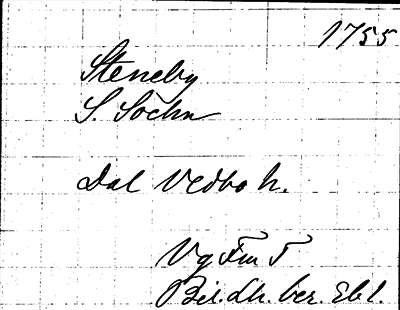 1755
Steneby
S. Sockn
Dal Vedbo h.
Vg Fm T
Bil. dh. ber. Ebl.